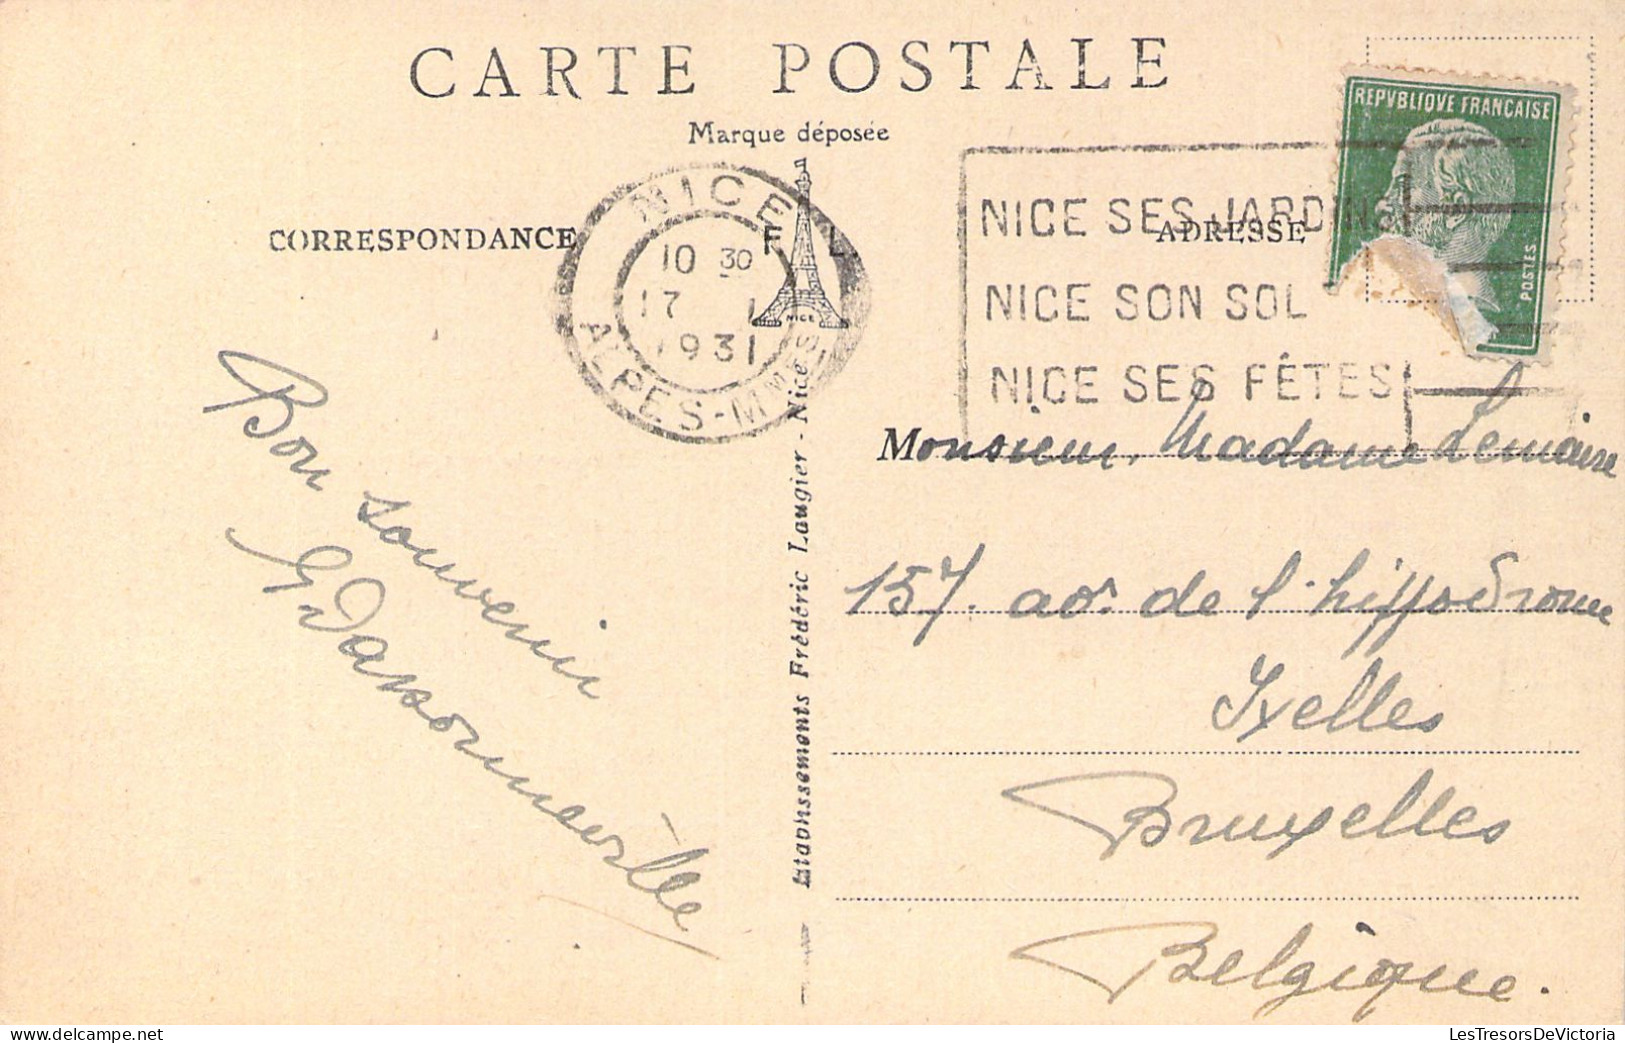 CARTE POSTALE
Marque déposée
F L
NICE
CORRESPONDANCE
ADRESSE
NICE
10 30
17 1
1931
ALPES-MMES
NICE SES JARDINS
NICE SON SOL
NICE SES FÊTES
REPVBLIQVE FRANÇAISE
POSTES
Bon souvenir
Monsieur, Madame Lemaire
157. av. de l'hippodrome
Ixelles
Bruxelles
Belgique.
Etablissements Frédéric Laugier - Nice
LesTresorsDeVictoria